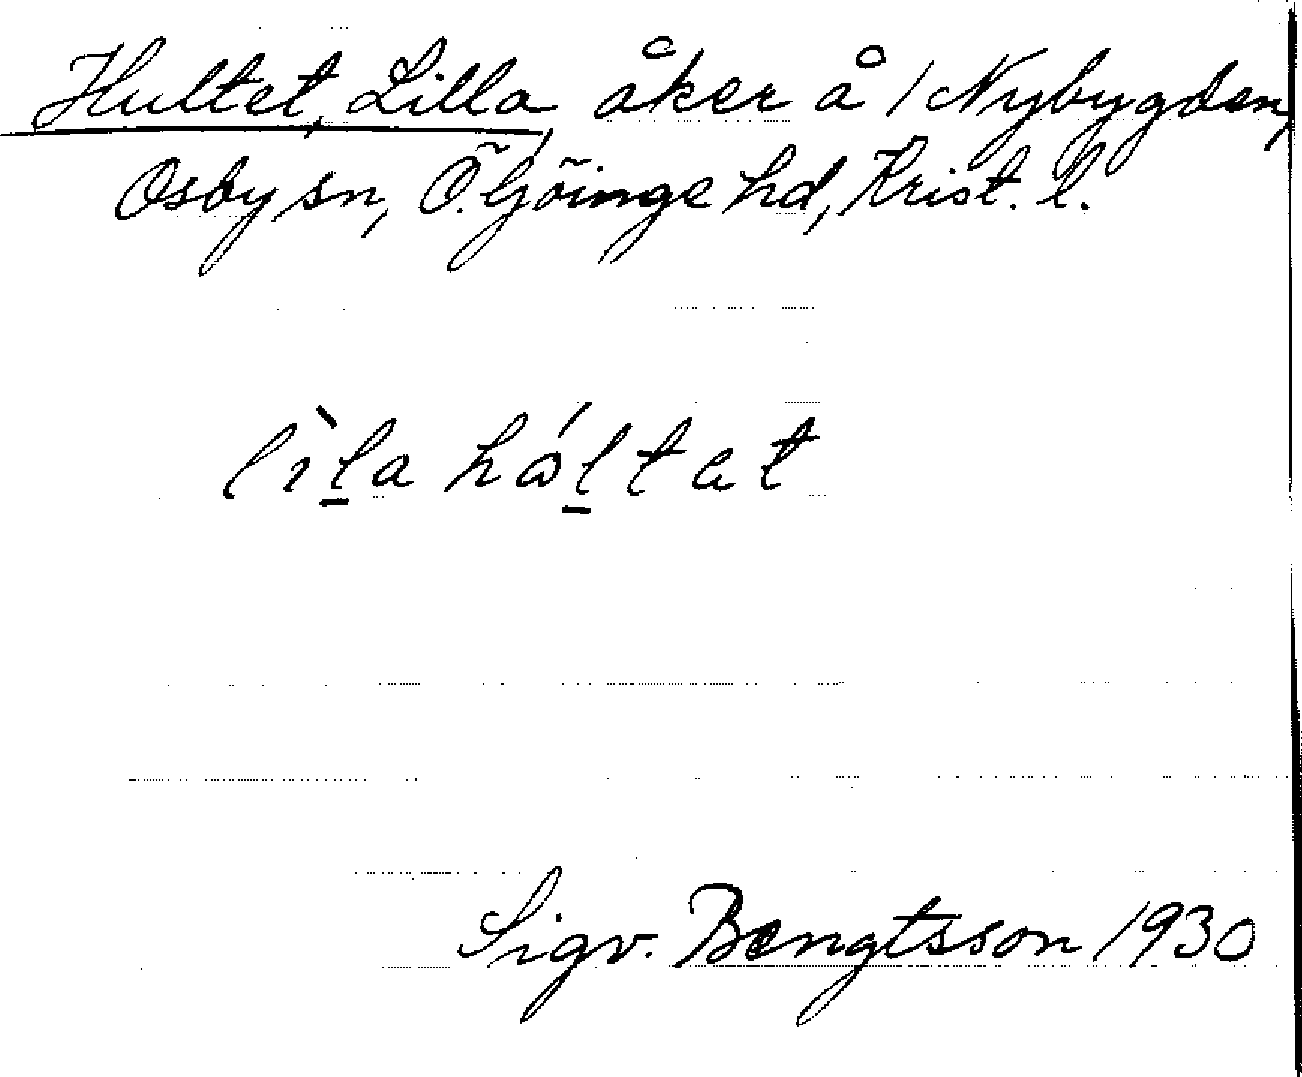 Hultet, Lilla, åker å 1 Nybygden,
Osby sn, Ö. Göinge hd, Krist. l.
lìla hóltat
Sigv. Bengtsson 1930